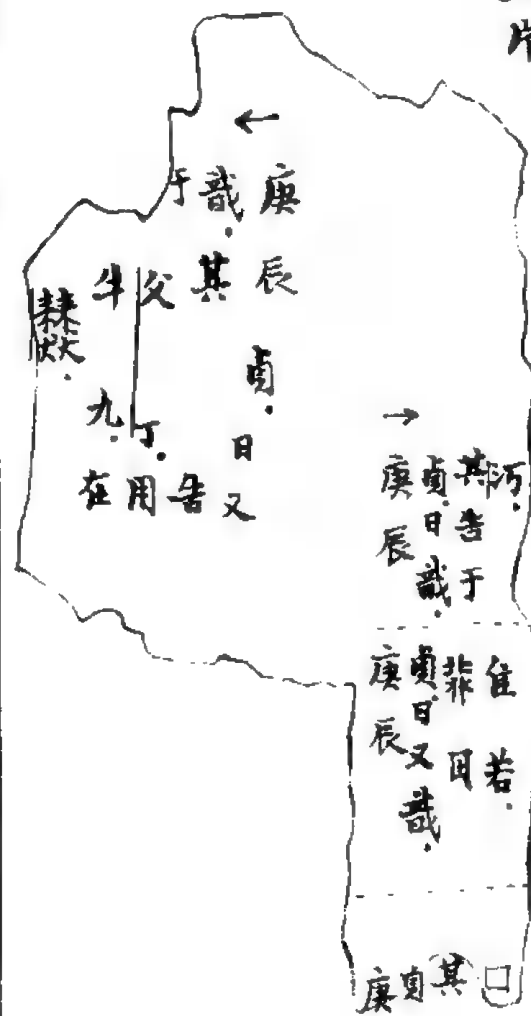 片
←
庚辰
貞.日又
戠.其告
于父丁.用
牛九.在
→
庚辰
貞.日戠.
其告于
河.
庚辰
貞.日又戠.
非囚
隹若.
庚
貞
其